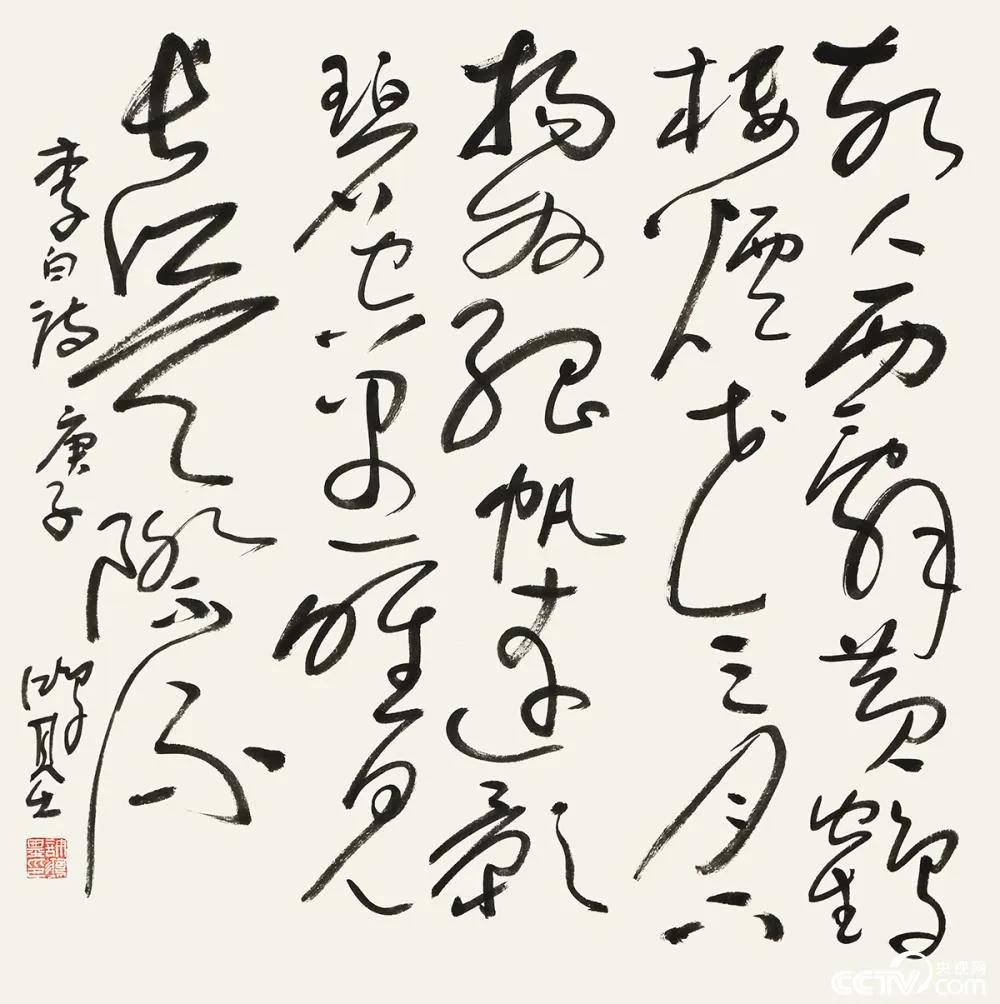 故人西辭黃鶴
樓煙花三月下
揚州孤帆遠影
碧空盡唯見
長江天際流
李白詩 庚子
央视网
CCTV.com